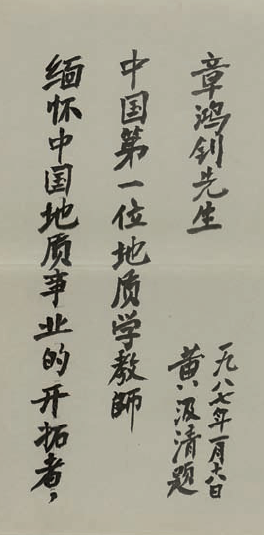 缅怀中国地质事业的开拓者，
中国第一位地质学教師
章鸿钊先生
黄汲清题
一九八七年一月十八日